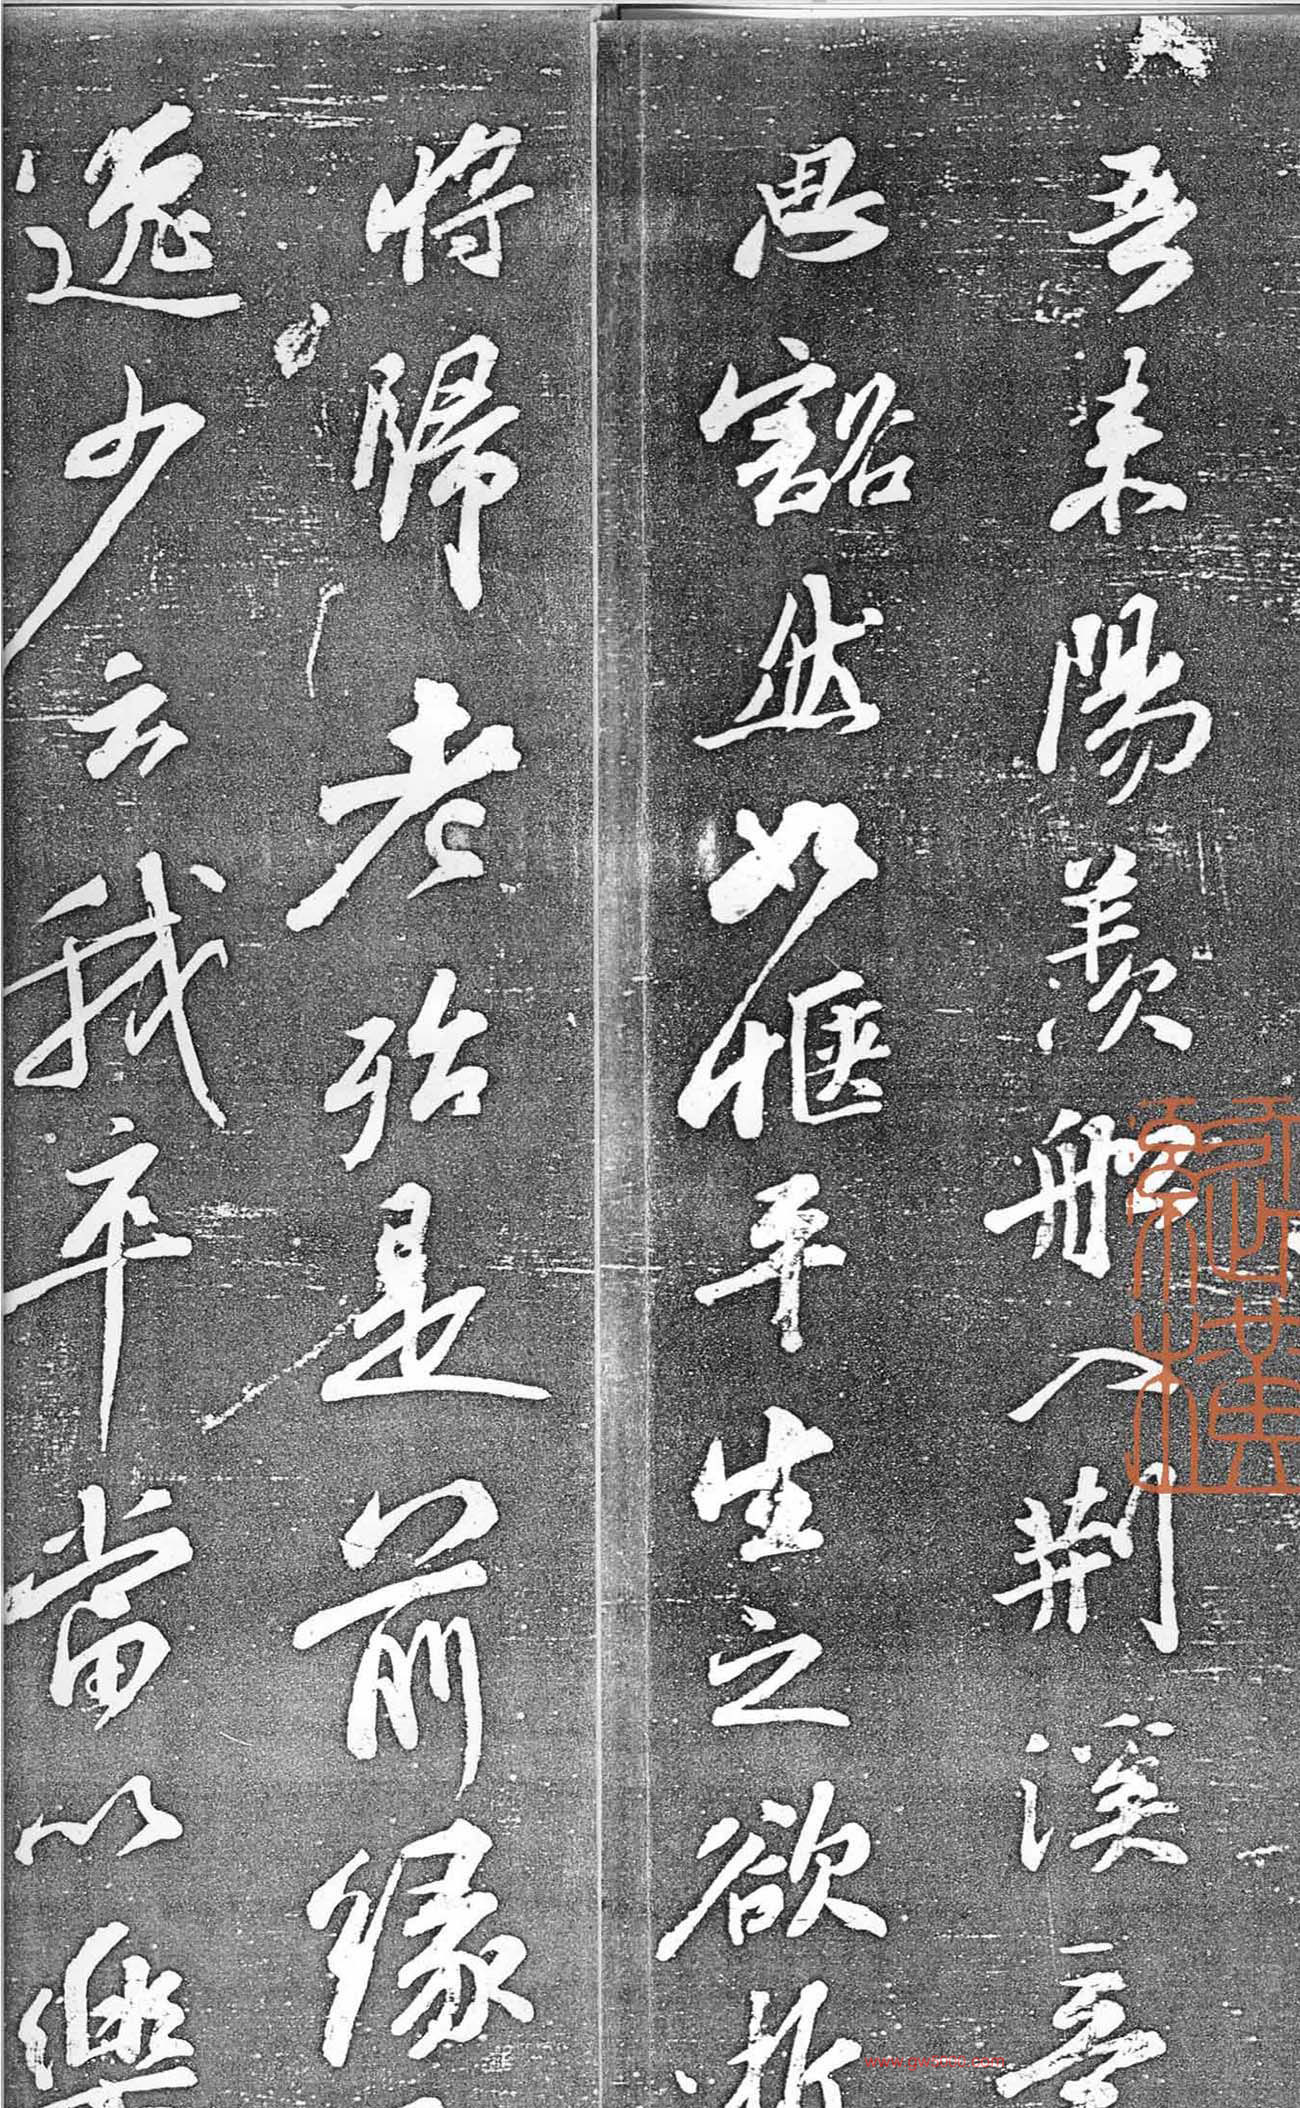 吾来陽羨船入荆溪意
思豁然如愜平生之欲逝
将歸老殆是前緣
逸少云我卒當以樂
www.gw5000.com